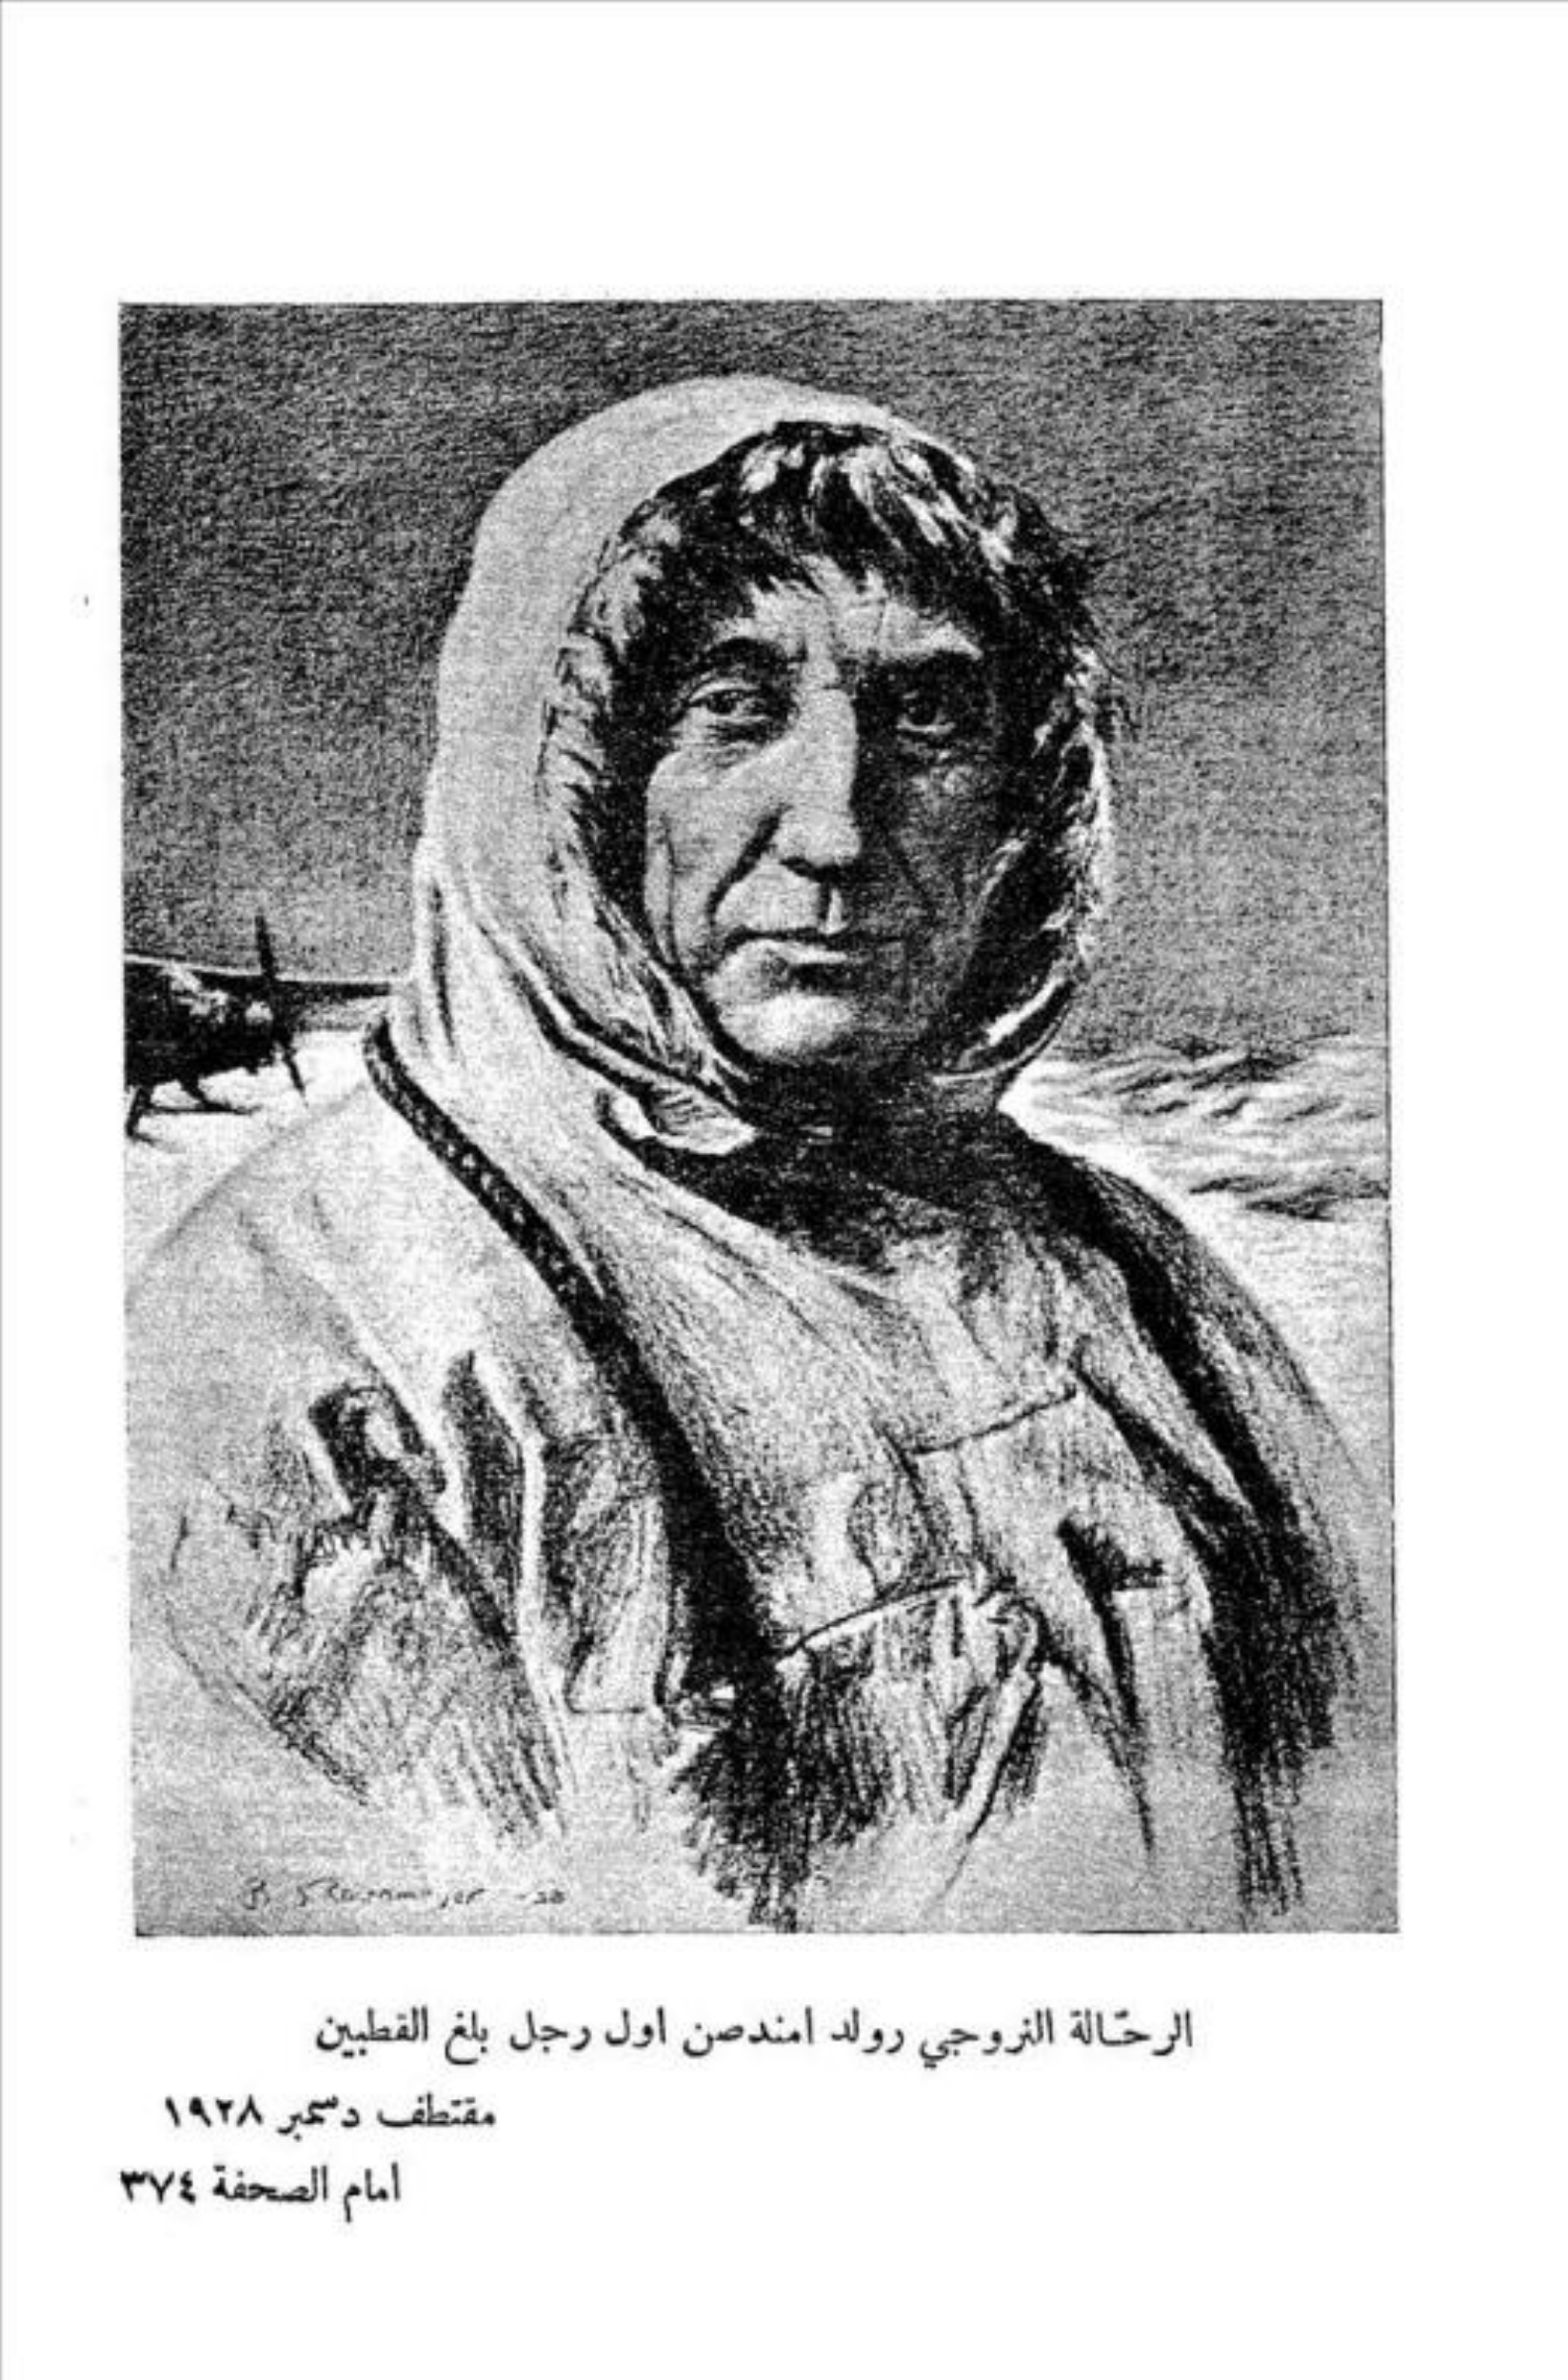 الرحّالة النروجي رولد امندصن اول رجل بلغ القطبين
مقتطف دسمبر ١٩٢٨
أمام الصحفة ٣٧٤